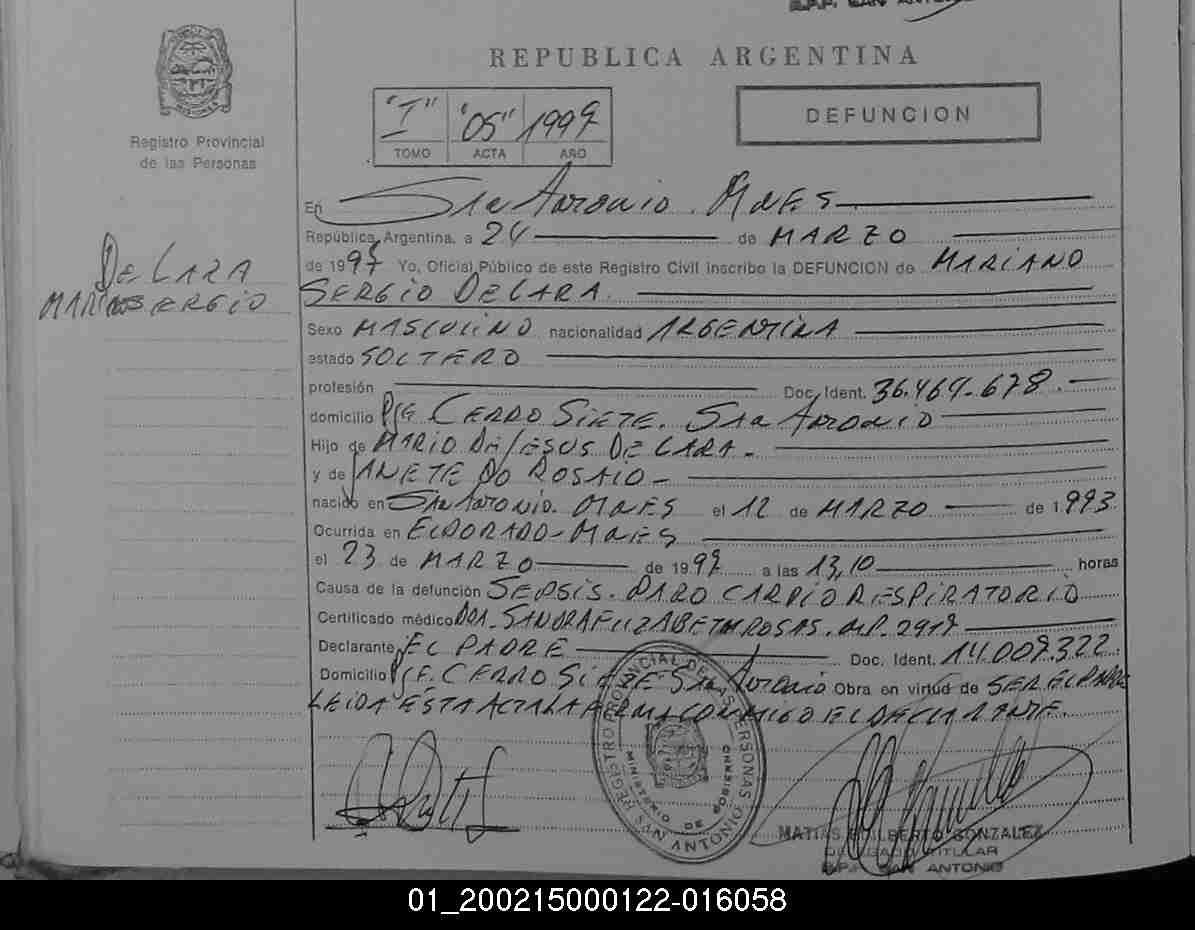 R.P.P. SAN ANTONIO
REPUBLICA ARGENTINA
"I" "05" 1997
TOMO ACTA AÑO
DEFUNCION
Registro Provincial
de las Personas
DE LARA
MARIANO SERGIO
En San Antonio. Mnes.
República Argentina, a 24 de MARZO
de 1997 Yo, Oficial Público de este Registro Civil inscribo la DEFUNCION de MARIANO
SERGIO DE LARA.
Sexo MASCULINO nacionalidad ARGENTINA
estado SOLTERO
profesión Doc. Ident. 36.469.678.
domicilio CERRO SIETE. San Antonio
Hijo de MARIO DE JESUS DE LARA.
y de ANETE DO ROSAIO
nacido en San Antonio. Mnes el 12 de MARZO de 1.993
Ocurrida en ELDORADO-Mnes
el 23 de MARZO de 1997 a las 13,10 horas
Causa de la defunción SEPSIS. PARO CARDIORESPIRATORIO
Certificado médico DRA. SANDRA ELIZABETH ROSAS. M.P. 2919
Declarante EL PADRE Doc. Ident. 14.009.322
Domicilio CERRO SIETE San Antonio Obra en virtud de SER EL PADRE
LEIDA ESTA ACTA LA FIRMA CONMIGO EL DECLARANTE.
REGISTRO PROVINCIAL DE LAS PERSONAS
MINISTERIO DE GOBIERNO
SAN ANTONIO
MATIAS GUILBERTO GONZALEZ
DELEGADO TITULAR
R.P.P. SAN ANTONIO
01_200215000122-016058